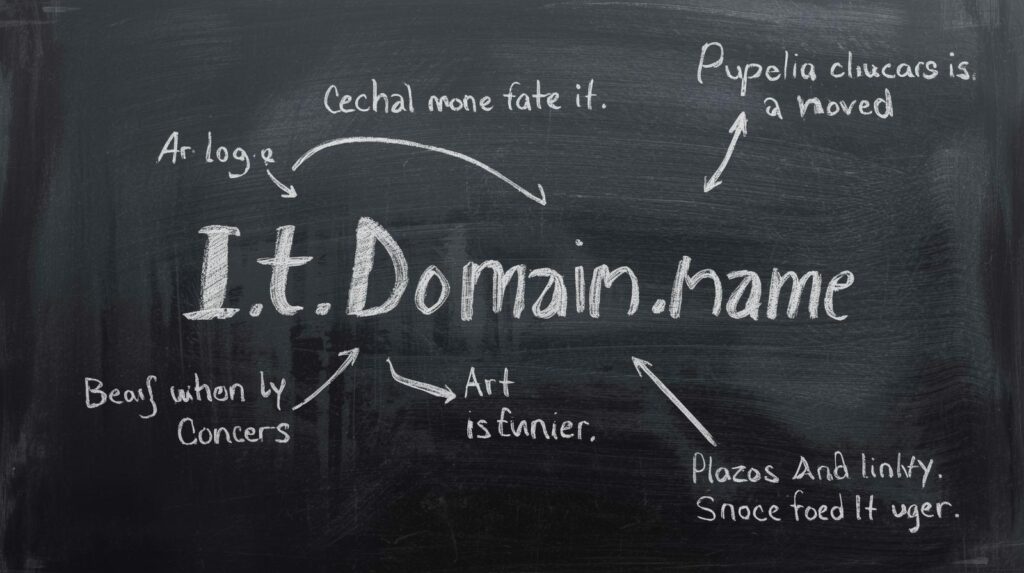 Pupelia clucars is.
a noved
Cechal mone fate it.
Ar. log.e
I.t.Domain.name
Bearf wthon ly
Concers
Art
is funier.
Plazos And linkty.
Snoce foed It uger.